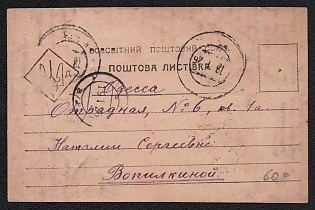 ВСЕСВІТНІЙ ПОШТОВИЙ
ПОШТОВА ЛИСТІВКА
Одесса
Отрадная, №6, кв. 1а.
Наталии Сергеевне
Вопилкиной
60=